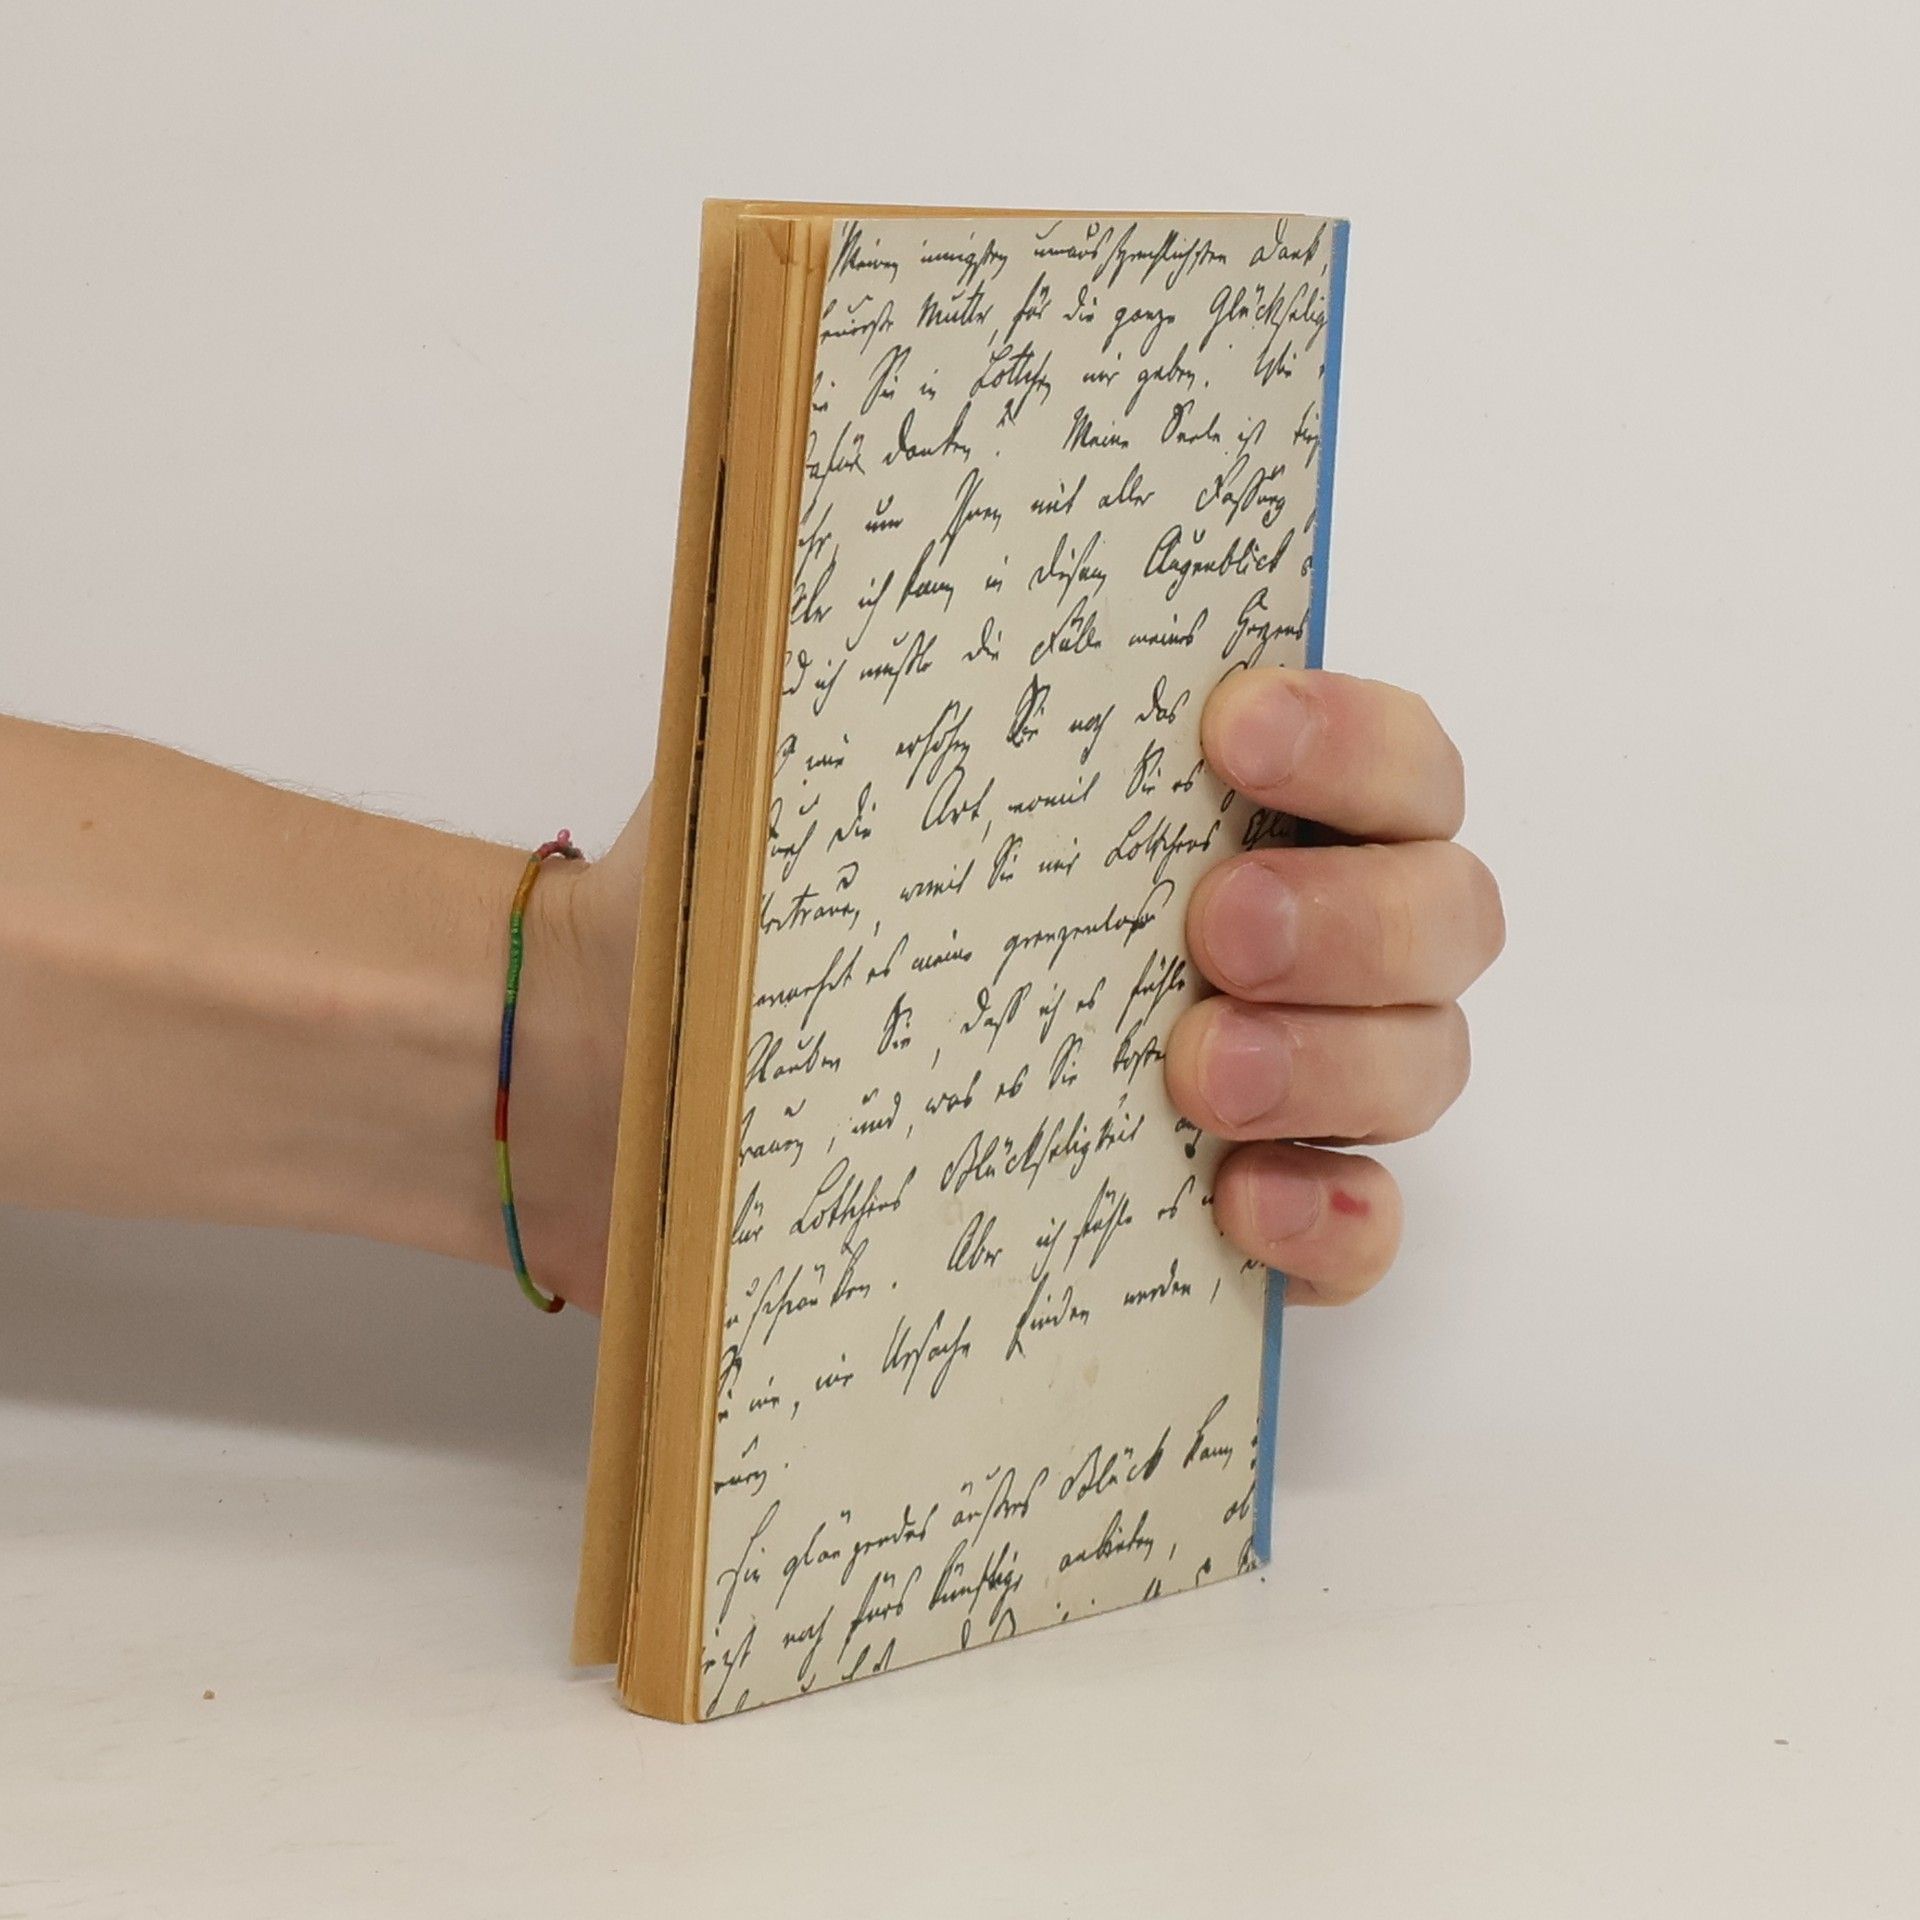 Meinen innigsten unaussprechlichsten Dank,
Mutter, für die ganze Glückselig
Sie in Lottchen mir geben. Wie
dafür danken? Meine Seele ist
um Ihnen mit aller Fassung
ich kann in diesem Augenblick
ich mußte die Fülle meines Herzens
wie erhöhen Sie noch das
durch die Art, womit Sie es
womit Sie mir Lottchens Glü
es meine grenzenlose
Glauben Sie, dass ich es fühle
und, was es Sie koste
für Lottchens Glückseligkeit
Aber ich fühle es
nie, nie Ursache finden werden,
Ein glänzendes äußres Glück kann
noch fürs künftige anbieten, ob